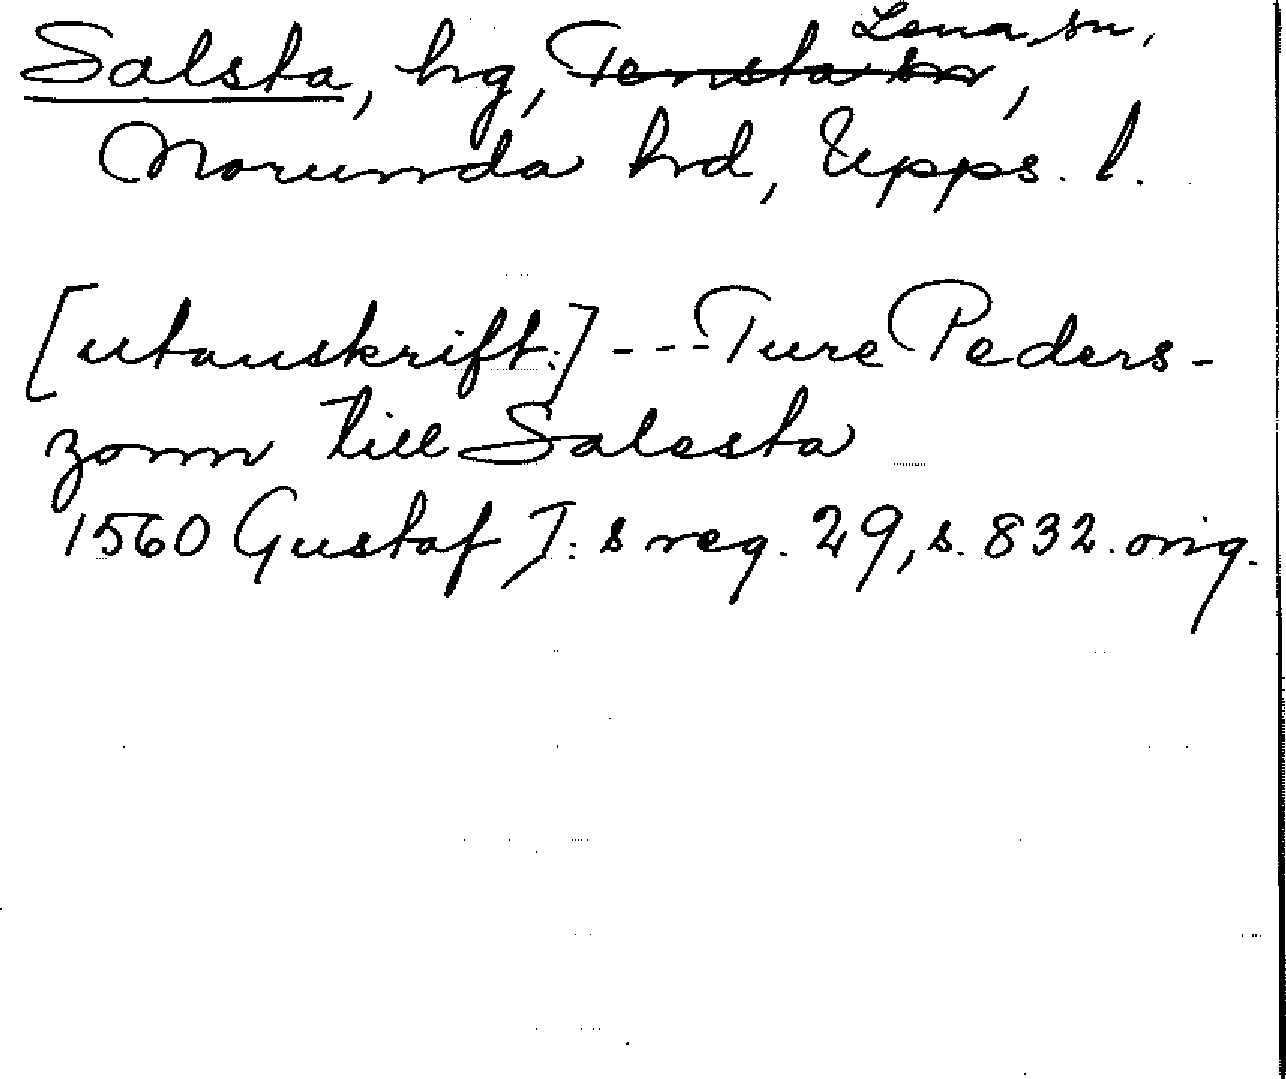 Lena sn,
Salsta, hg, Tensta sn,
Norunda hd, Upps. l.
[utanskrift:] --- Ture Peders-
zonn till Salesta
1560 Gustaf I:s reg. 29, s. 832. orig.